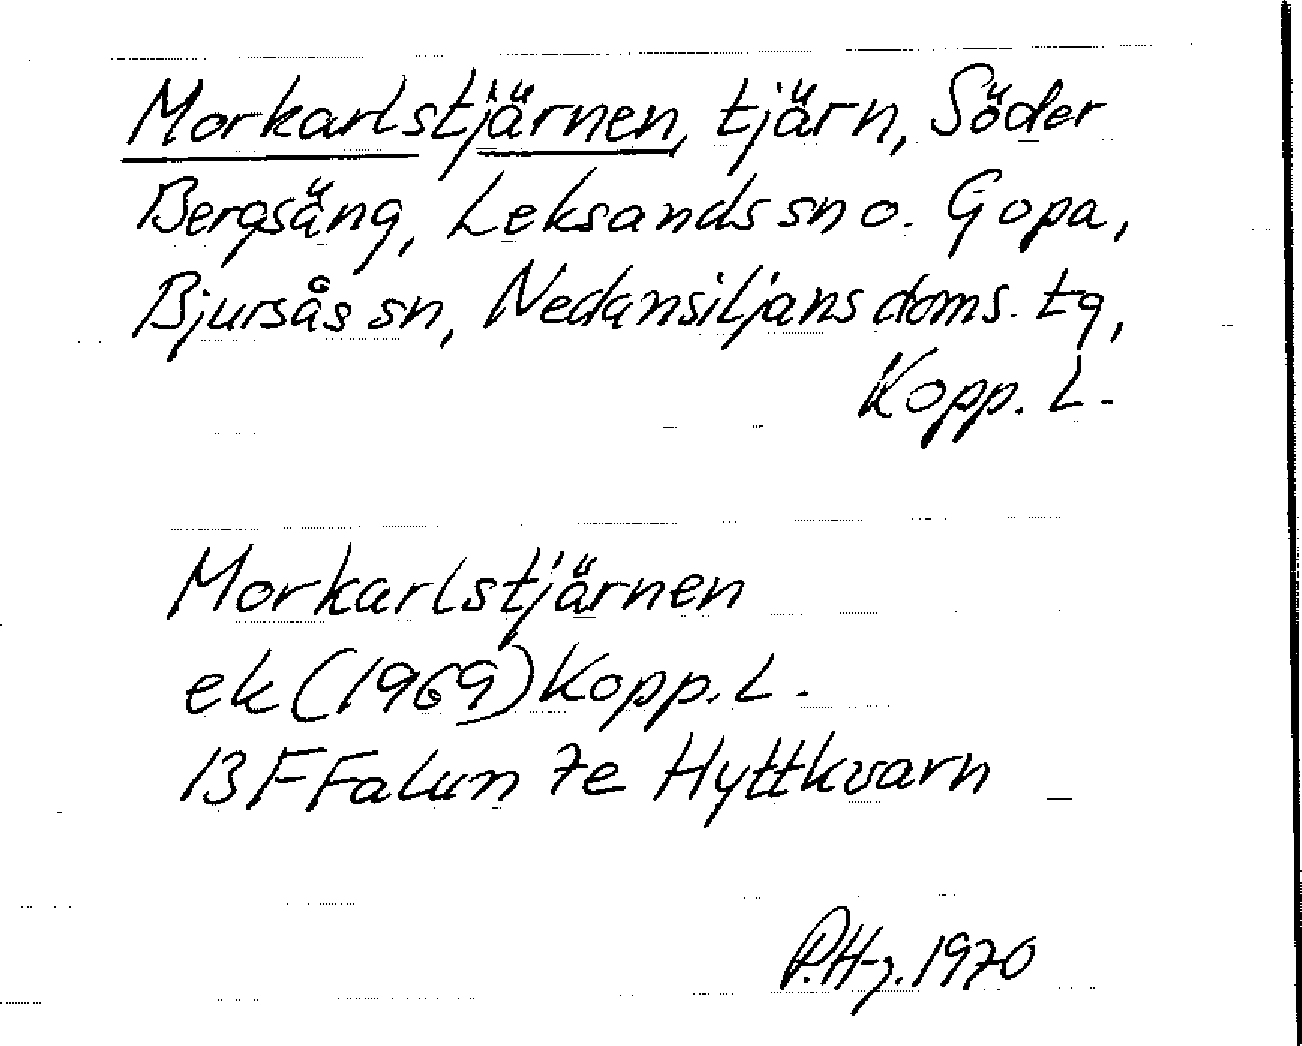 Morkarlstjärnen, tjärn, Söder
Bergsäng, Leksands sn o. Gopa,
Bjursås sn, Nedansiljans doms. tg,
Kopp. L.
Morkarlstjärnen
ek (1969) Kopp. L.
13F Falun 7e Hyttkvarn
P.Hg. 1970